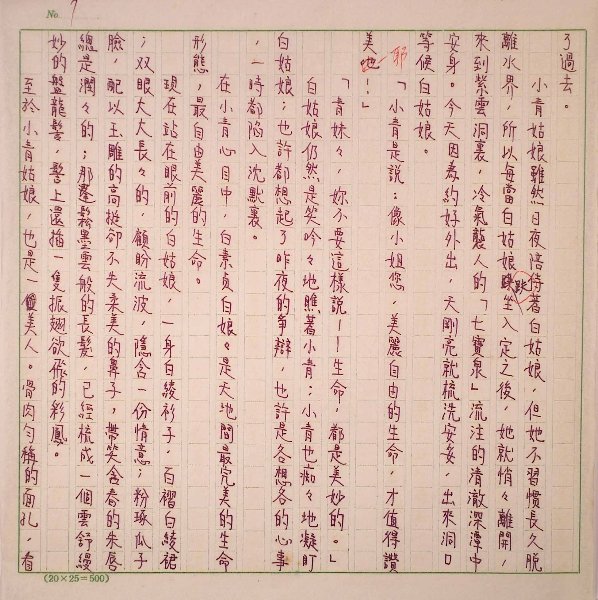 No. 7
了過去。
小青姑娘雖然日夜陪侍著白姑娘，但她不習慣長久脫
離水界，所以每當白姑娘趺坐入定之後，她就悄々離開，
來到紫雲洞裏，冷氣襲人的「七寶泉」流注的清澈深潭中
安身。今天因為約好外出，天剛亮就梳洗安妥，出來洞口
等候白姑娘。
「小青是說：像小姐您，美麗自由的生命，才值得讚
美耶！」
「青妹々，妳不要這樣說——生命，都是美妙的。」
白姑娘仍然是笑吟々地瞧著小青；小青也痴々地凝盯
白姑娘；也許都想起了昨夜的爭辯，也許是各想各的心事
，一時都陷入沈默裏。
在小青心目中，白素貞白娘々是天地間最完美的生命
形態，最自由美麗的生命。
現在站在眼前的白姑娘，一身白綾衫子，百褶白綾裙
；双眼大大長々的，顧盼流波，隱含一份情意；粉琢瓜子
臉，配以玉雕的高挺卻不失柔美的鼻子，帶笑含春的朱唇
總是潤々的；那蓬鬆墨雲般的長髮，已經梳成一個雲舒縵
妙的盤龍髻，髻上還插一隻振翅欲飛的彩鳳。
至於小青姑娘，也是一個美人。骨肉勻稱的面孔，看
(20×25=500)